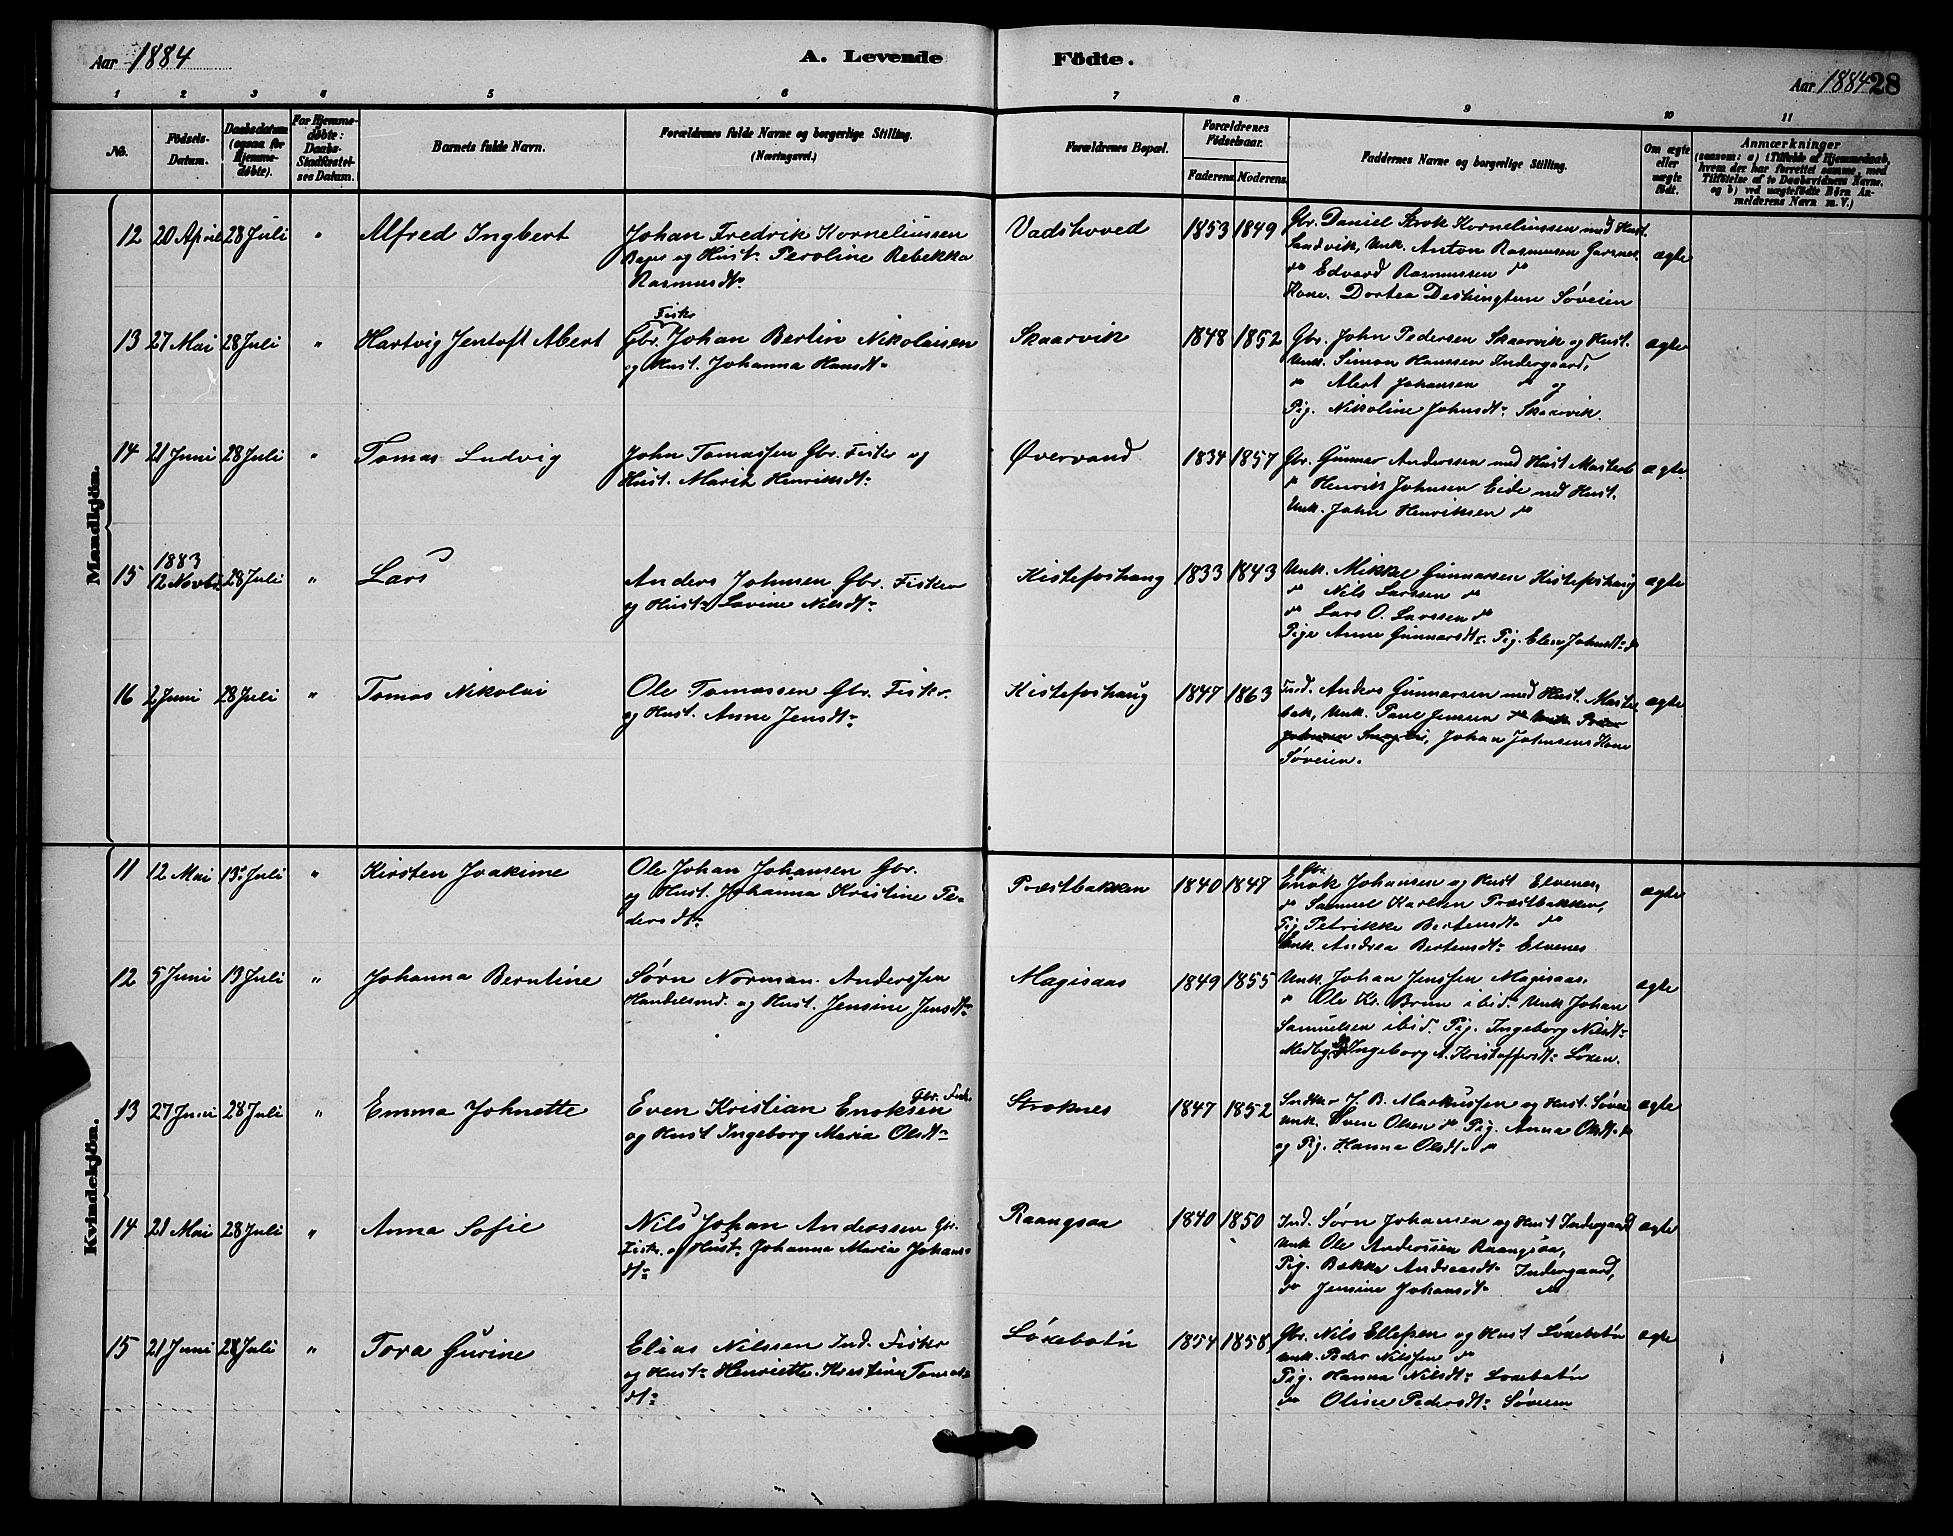 Aar 1884
A. Levende
Födte.
Aar 1884 28
1 2 3 4 5 6 7 8 9 10 11
No.
Födsels-
Datum.
Daabsdatum
(ogsaa for
Hjemme-
døbte).
For Hjemme-
døbte:
Daabs-
Stadfæstel-
ses Datum.
Barnets fulde Navn.
Forældrenes fulde Navne og borgerlige Stilling.
(Næringsvei.)
Forældrenes Bopæl.
Forældrenes
Födselsaar.
Faderens. Moderens.
Faddernes Navne og borgerlige Stilling.
Om ægte
eller
uægte
født.
Anmærkninger
(saasom: a) i Tilfælde af Hjemmedaab,
hvem der har forrettet samme, med
Tilføielse af to Daabsvidners Navne.
og b) ved uægtefødte Börn An-
melderens Navn m. V.)
Mandkjön.
12 20 April 28 Juli " Alfred Ingbert
Johan Fredrik Korneliussen
og Hust. Peroline Rebekka
Rasmusdtr
Vadshoved 1853 1849
Gbr. Daniel Krok Korneliussen med Hust.
Sandvik, Unk. Anton Rasmussen
do Edvard Rasmussen do
Kone. Dortea Søveien
ægte
13 27 Mai 28 Juli " Hartvig Jentoft Albert
Fisker
Gbr. Johan Berlin Nikolaisen
og Hust. Johanna Hansdtr
Skaarvik 1848 1852
Gbr. John Pedersen Skaarvik og Hust.
Unk. Simon Hanssen Indergaard,
do Albert Johansen do og
Pig. Nikoline Johnsdtr Skaarvik.
ægte
14 21 Juni 28 Juli " Tomas Ludvig
John Tomassen Gbr. Fisker og
Hust. Marit Henriksdtr
Øvervand 1834 1857
Gbr. Gunnar Anderssen med Hust
do Henrik Johnsen Eide med Hust.
Unk. John Henriksen do
ægte
15 1883
12 Novbr 28 Juli " Lars
Anders Johnsen Gbr. Fisker
og Hust. Lovine Nilsdtr
Kistefoshaug 1833 1843
Unk. Mikkel Gunnarsen Kistefoshaug
do Nils Larssen do
do Lars O. Larssen do
Pige Anne Gunnarsdtr. Pig. Elen Johnsdtr do
ægte
16 2 Juni 28 Juli " Tomas Nikolai
Ole Tomassen Gbr. Fisker.
og Hust. Anne Jensdtr
Kistefoshaug 1847 1863
Ind. Anders Gunnarsen med Hust.
Unk. Paul Jensen do
Johan Johnsens Kone
Søveien.
ægte
Kvindekjön.
11 12 Mai 13 Juli " Kirsten Joakime
Ole Johan Johansen Gbr.
og Hust. Johanna Kristine Pe-
dersdtr
Præstbakken 1840 1847
Gbr.
Enok Johansen og Hust Elvenes,
do Samuel Karlsen Præstbakken,
Pig. Petrikke Bertensdtr do
Andrea Bertensdtr Elvenes
ægte
12 5 Juni 13 Juli " Johanna Berntine
Sørn Norman Anderssen
Handelsmd. og Hust. Jensine Jensdtr
Magisaas 1849 1855
Unk. Johan Jenssen Magisaas.
do Ole Kr. Brun ibid. Unk. Johan
Samuelsen ibid. Pig. Ingeborg Nilsdtr
Medby, Ingeborg A. Kristoffersdtr Løxen.
ægte
13 27 Juni 28 Juli " Emma Johnette
Gbr. Fisk.
Even Kristian Enoksen
og Hust Ingeborg Maria Olsdtr
Stroknes 1847 1852
J. B. Markussen og Hust. Søvei
Unk. Sven Olsen do Pig. Anna Olsdtr do
og Pig. Hanna Olsdtr do
ægte
14 21 Mai 28 Juli " Anna Sofie
Nils Johan Anderssen Gbr.
Fisker. og Hust. Johanna Maria Johans-
dtr
Raangsaa 1840 1850
Ind. Sørn Johansen og Hust Indergaard
Unk Ole Anderssen Raangsaa,
Pig. Bækka Andreasdtr Indergaard,
do Jensine Johansdtr do
ægte
15 21 Juni 28 Juli " Tora Gurine
Elias Nilssen Ind. Fisker
og Hust. Henriette Kirstine Tomas-
dtr
Løxebotn 1854 1858
Gbr. Nils Ellefsen og Hust Løxebotn
Unk. Peder Nilssen do
Pig. Hanna Nilsdtr Løxebotn
do Oline Pedersdtr Søveien
ægte